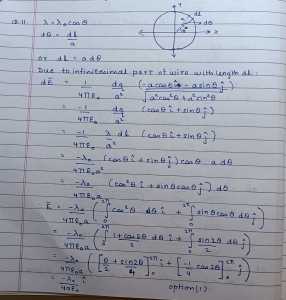 Q.11. λ = λ₀ cosθ
dθ = dL/a
or dL = a dθ
Y
dL
dθ
a
θ
X
Due to infinitesimal part of wire with length dL:
dE = 1/4πε₀ dq/a² (-a cosθ î - a sinθ ĵ)/√(a²cos²θ + a²sin²θ)
= -1/4πε₀ dq/a² (cosθ î + sinθ ĵ)
= -1/4πε₀ λ dL/a² (cosθ î + sinθ ĵ)
= -λ₀/4πε₀a² (cosθ î + sinθ ĵ) cosθ a dθ
= -λ₀/4πε₀a (cos²θ î + sinθ cosθ ĵ) dθ
E = -λ₀/4πε₀a (∫₀^2π cos²θ dθ î + ∫₀^2π sinθ cosθ dθ ĵ)
= -λ₀/4πε₀a (∫₀^2π 1+cos2θ/2 dθ î + ∫₀^2π sin2θ/2 dθ ĵ)
= -λ₀/4πε₀a ([θ/2 + sin2θ/4]₀^2π î + [-1/4 cos2θ]₀^2π ĵ)
= -λ₀/4aε₀ î
option(1)